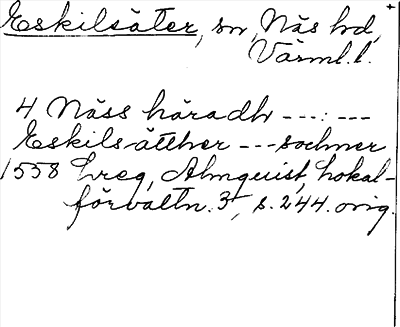 Eskilsäter, sn, Näs hd,
Värml. l.
4 Näss häradh ---:---
Eskils ätther --- sochner
1558 Lreg, Almquist, Lokal-
förvaltn. 3, s. 244. orig.